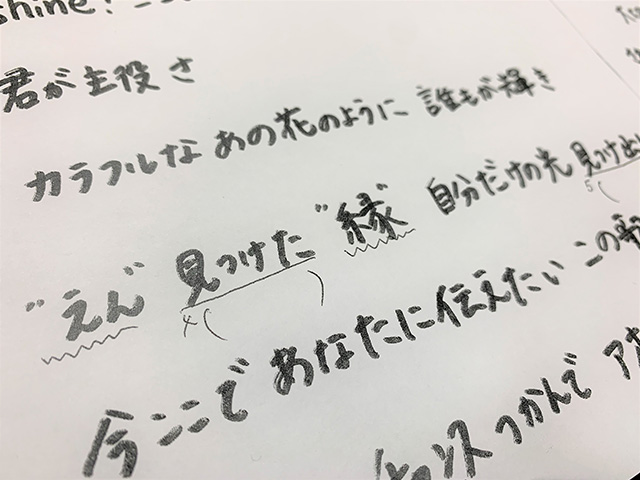 shine!
君が主役さ
カラフルな あの花のように 誰もが輝き
"えん" 見つけた "縁" 自分だけの光 見つけ出
4( ) 5(
今ここで あなたに伝えたい この歌
つかんで